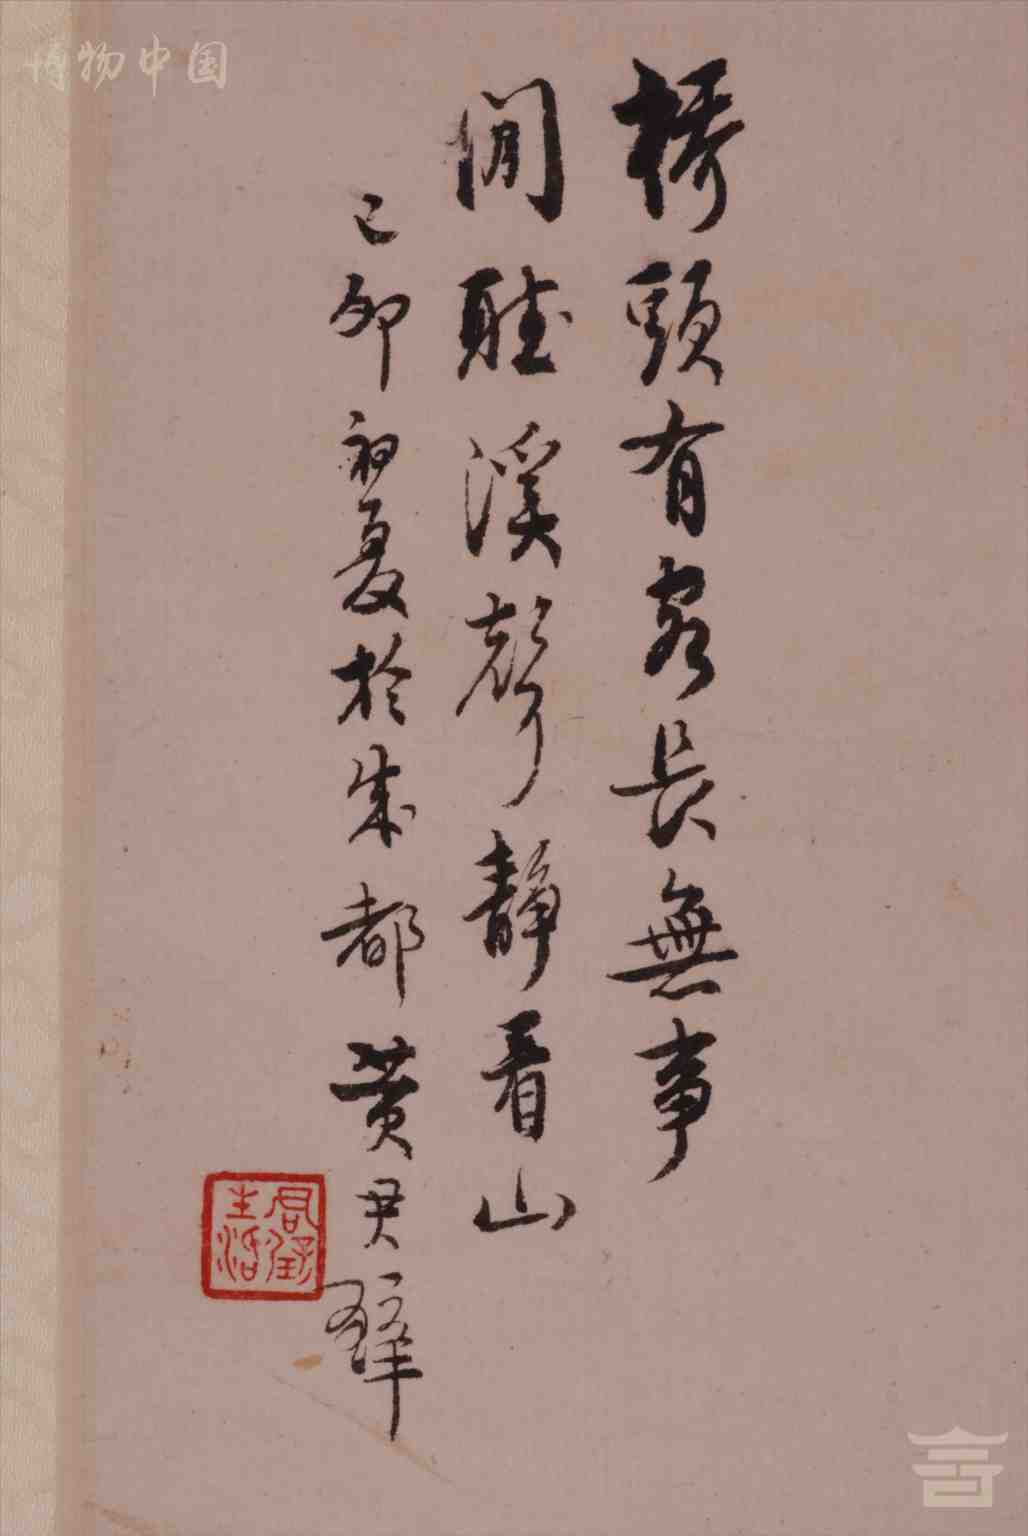 橋頭有客長無事
閒聽溪聲靜看山
己卯初夏於成都黃君璧
博物中国